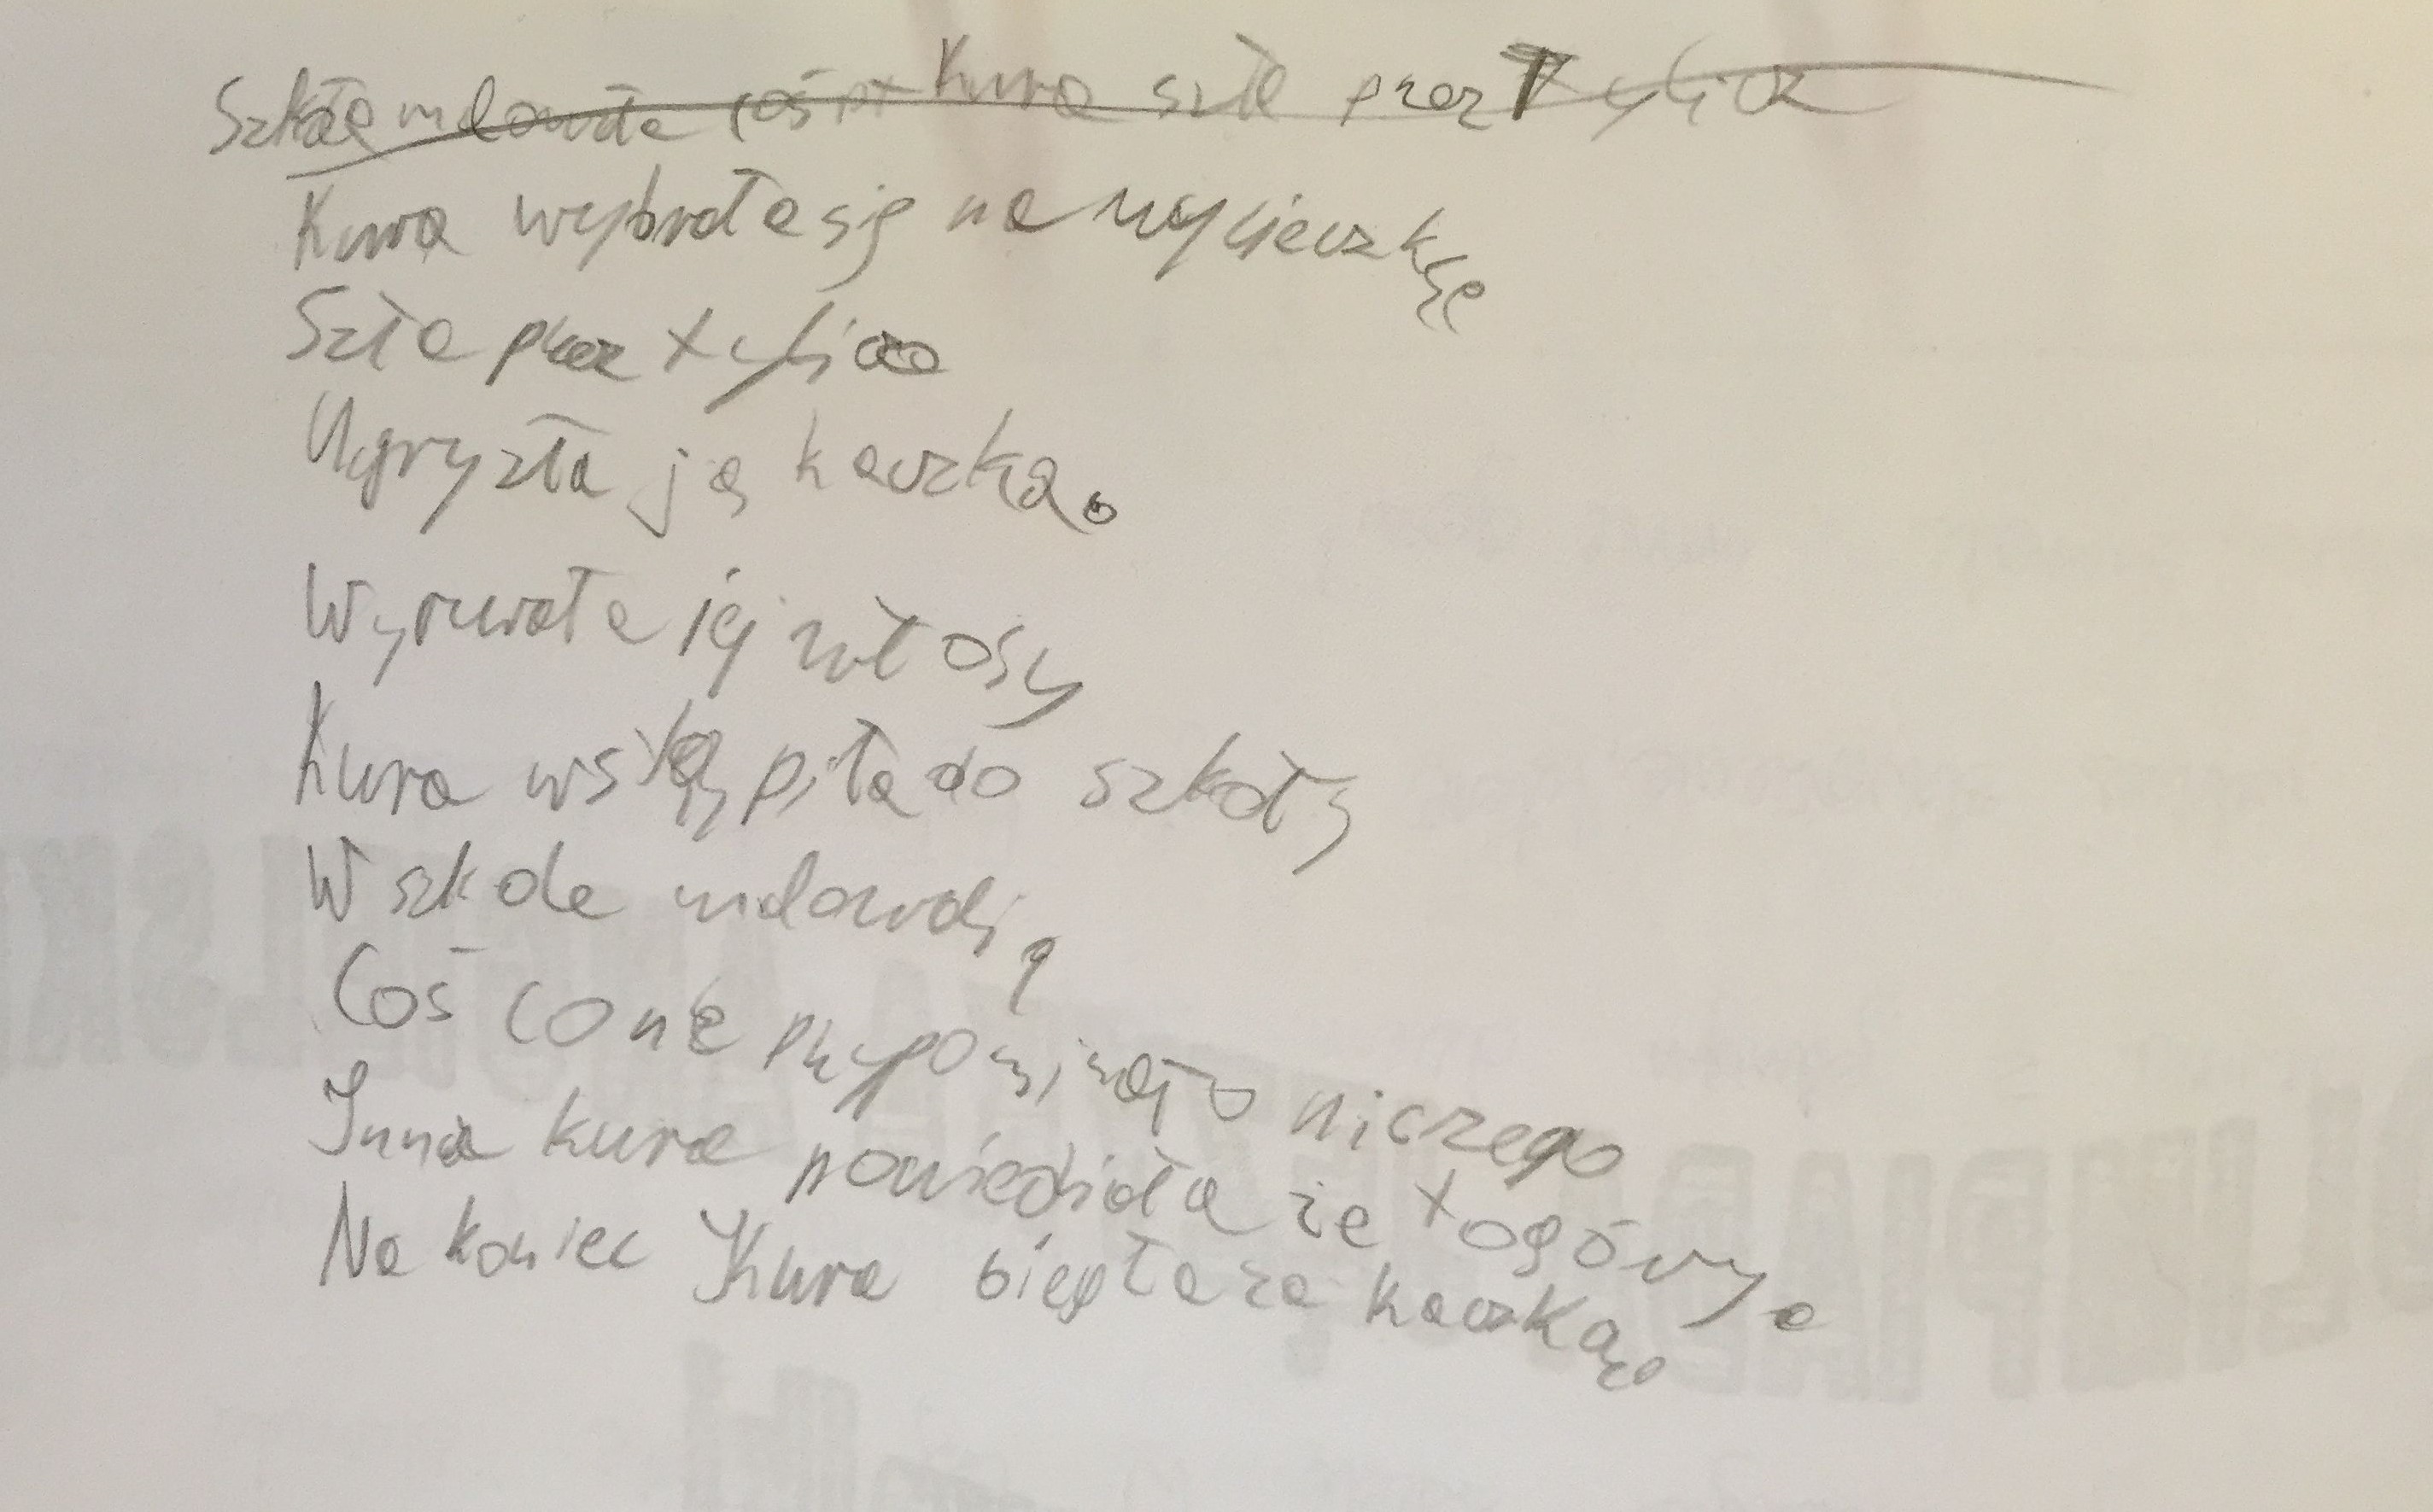 Kura szła przez Tylicz
Kura wybrała się na wycieczkę
Szła przez tylicz
Ugryzła ją kaczka.
Wyrwała jej włosy
Kura wstąpiła do szkoły
W szkole malowali
Coś co nie przypominało niczego
Inna kura powiedziała że to góry.
Na koniec Kura biegła za kaczką.